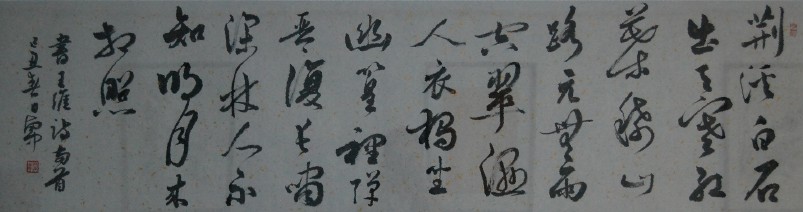 荆溪白石
出天寒红
葉稀山
路元無雨
空翠濕
人衣獨坐
幽篁裡弹
琴復长啸
深林人不
知明月来
相照
書王维诗两首
己丑春日